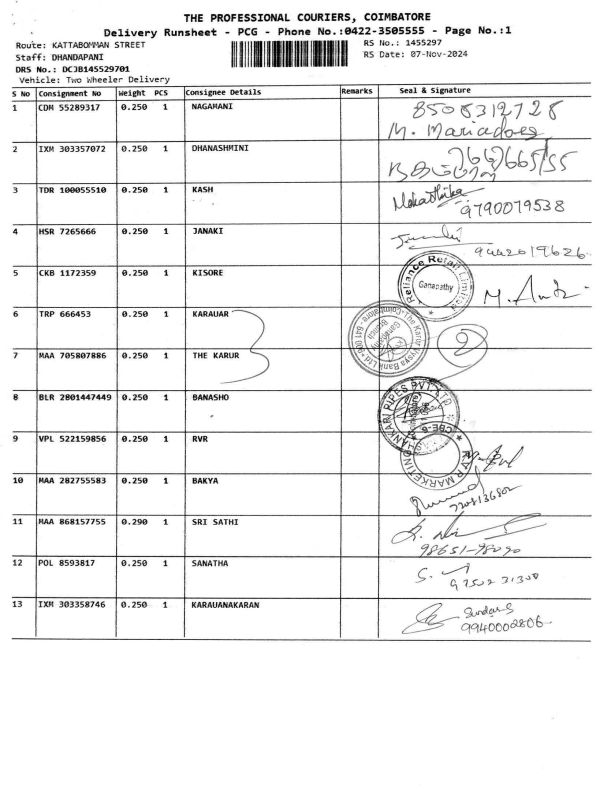 THE PROFESSIONAL COURIERS, COIMBATORE
Delivery Runsheet - PCG - Phone No.:0422-3505555 - Page No.:1
Route: KATTABOMMAN STREET
RS No.: 1455297
Staff: DHANDAPANI
RS Date: 07-Nov-2024
DRS No.: DCJB145529701
Vehicle: Two Wheeler Delivery
S No Consignment No Weight PCS Consignee Details Remarks Seal & Signature
1 CDM 55289317 0.250 1 NAGAMANI 8508312728
M. Mariadoes
2 IXM 303357072 0.250 1 DHANASHMINI
3 TDR 100055510 0.250 1 KASH
9790079538
4 HSR 7265666 0.250 1 JANAKI
9442019626
5 CKB 1172359 0.250 1 KISORE Reliance Retail Limited
Ganapathy
6 TRP 666453 0.250 1 KARAUAR
2
7 MAA 705807886 0.250 1 THE KARUR
8 BLR 2801447449 0.250 1 BANASHO
PIPES PVT LTD
CBE-6
9 VPL 522159856 0.250 1 RVR
RVR MARKETING
10 MAA 282755583 0.250 1 BAKYA
11 MAA 868157755 0.290 1 SRI SATHI
98651-98090
12 POL 8593817 0.250 1 SANATHA
S.
13 IXM 303358746 0.250 1 KARAUANAKARAN
Sundar S
9940002806